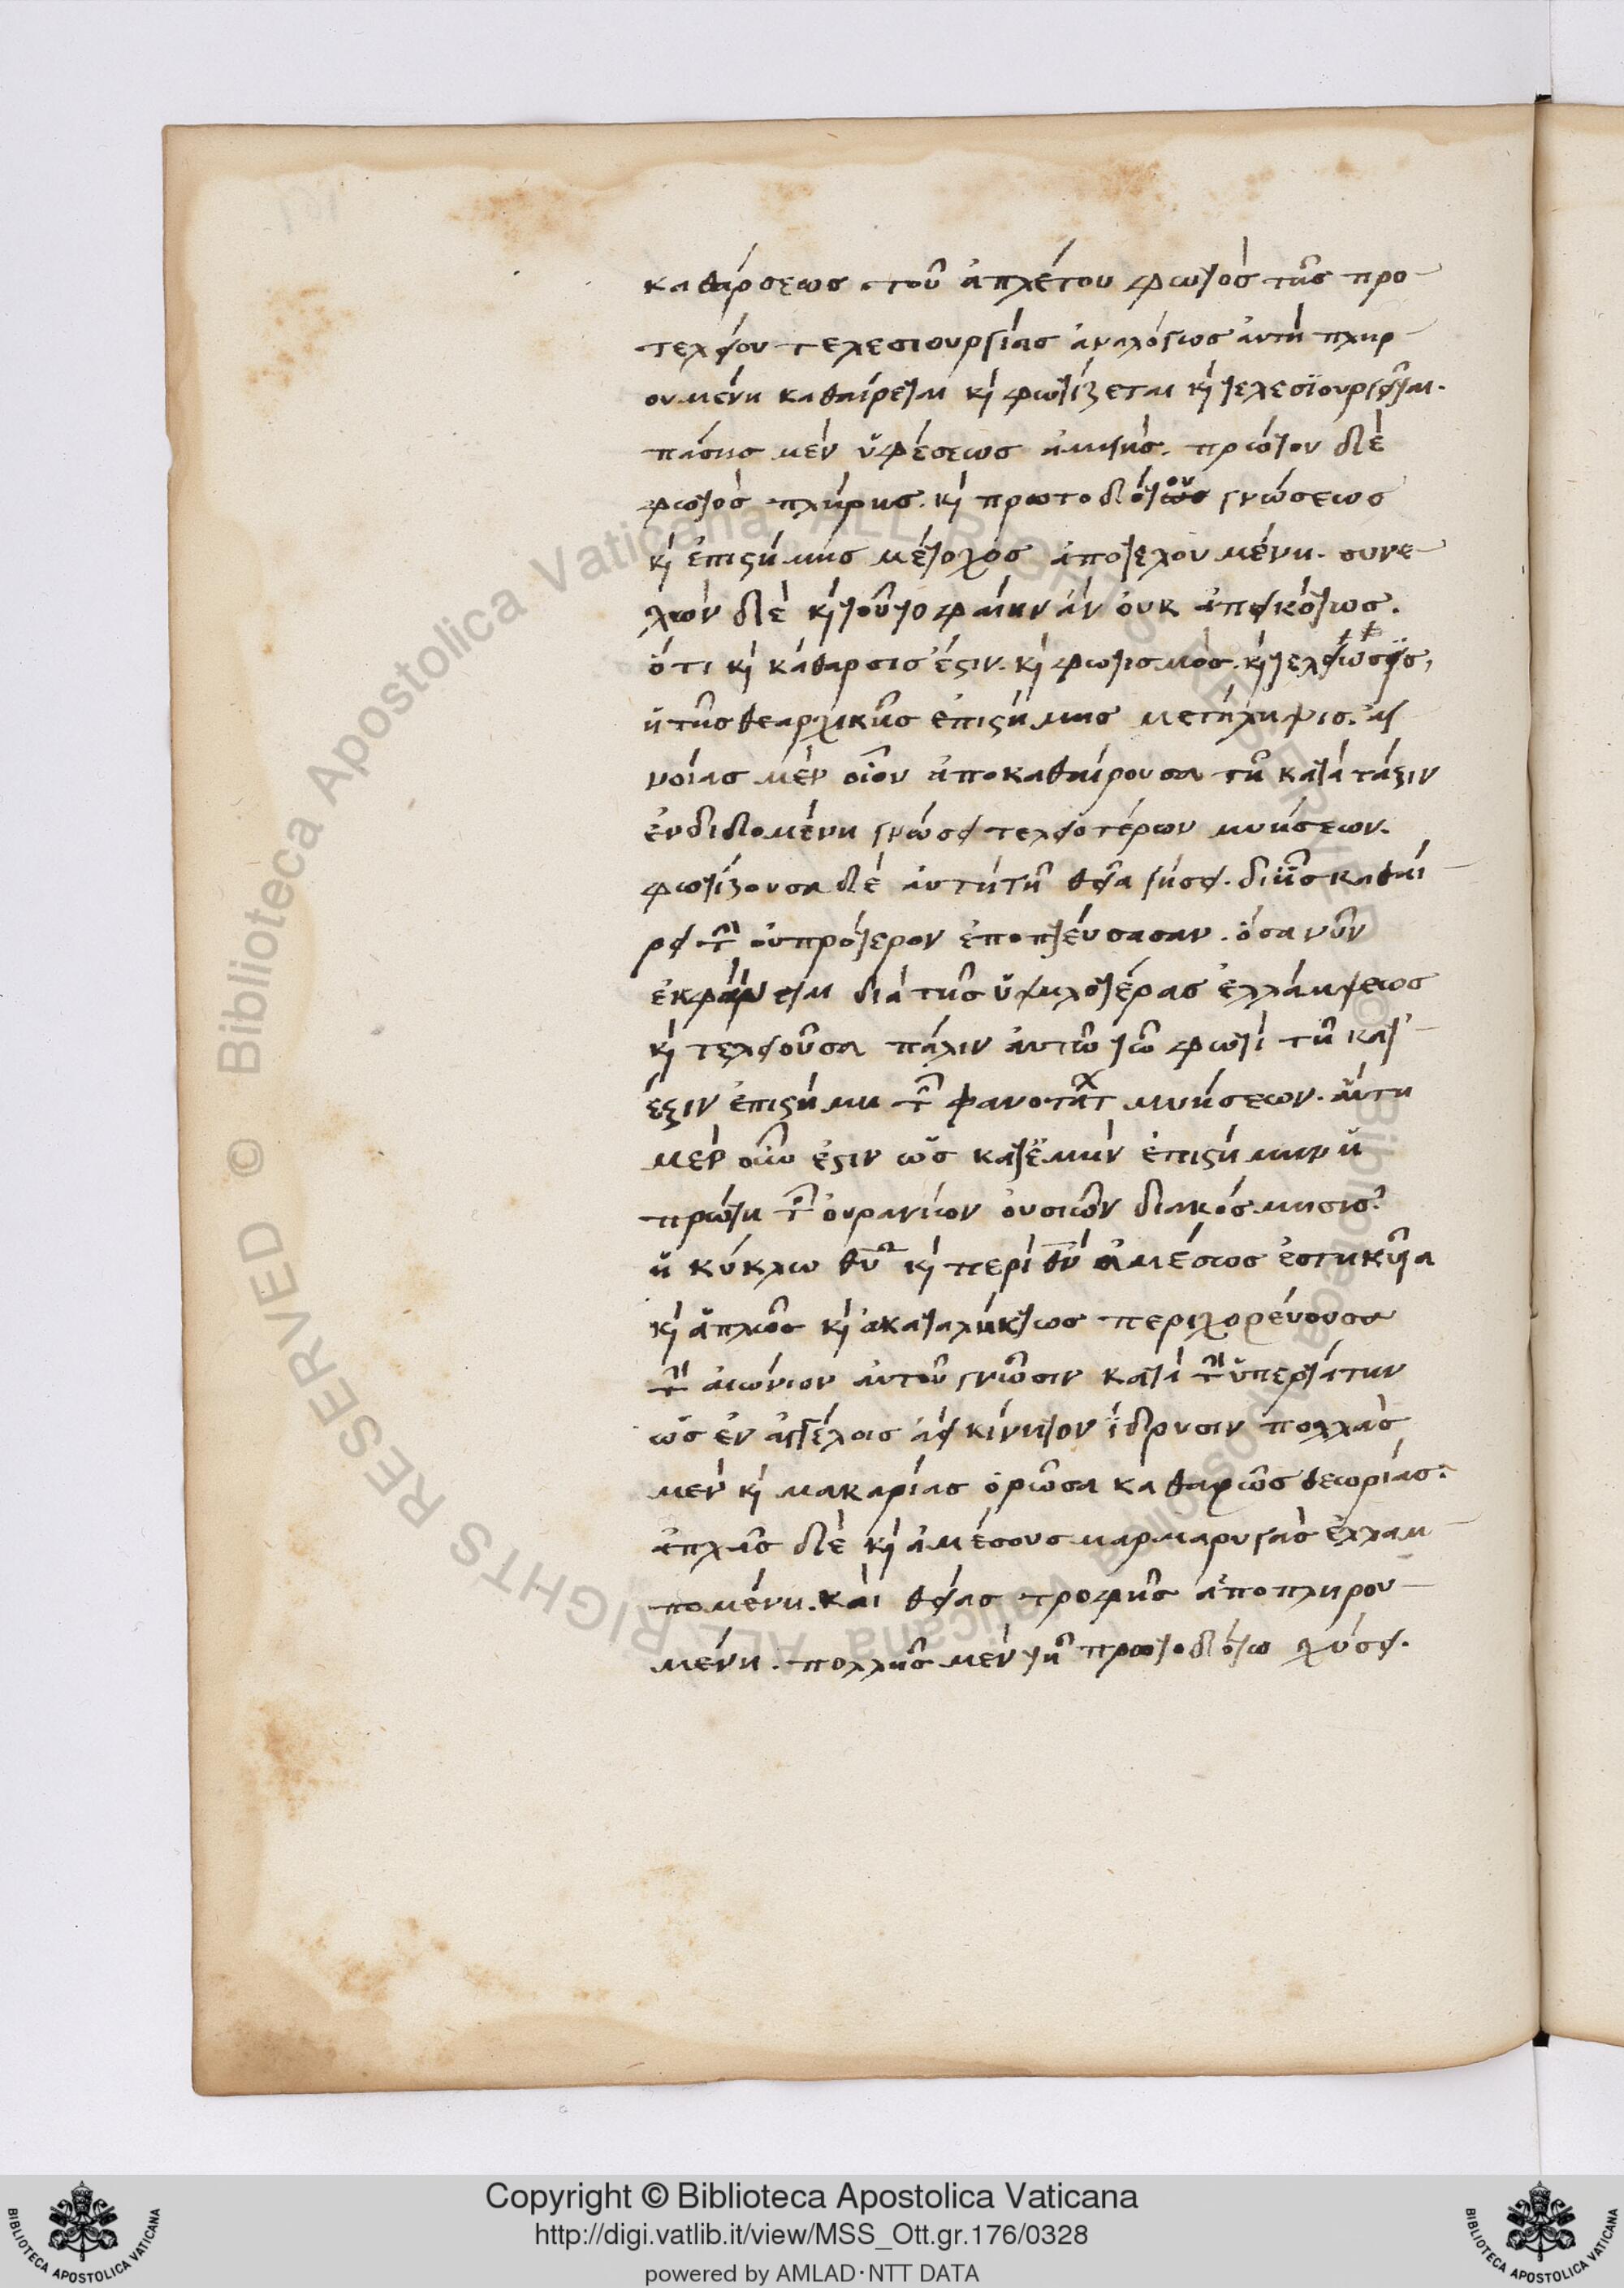 καθάρσεως τοῦ ἀπλέτου φωτὸς τῆς προ-
τελείου τελεσιουργίας ἀναλόγως αὐτὴ πληρ-
ουμένη καθαίρεται κὶ φωτίζεται κὶ τελεσϊουργεῖται.
πάσης μὲν ὑφέσεως ἀμιγὴς. πρώτου δὲ
φωτὸς πλήρης. κὶ πρωτοδότου γνώσεως
κὶ ἐπιστήμης μέτοχος ἀποτελουμένη. συνε-
λὼν δὲ κὶ τοῦτο φαίην ἂν οὐκ ἀπεικότως.
ὅτι κὶ κάθαρσις ἐστιν. κὶ φωτισμὸς. κὶ τελείωσις,
ἡ τῆς θεαρχικῆς ἐπιστήμης μετάληψις. ἀγ
νοίας μὲν οἷον ἀποκαθαίρουσα τῇ κατὰ τάξιν
ἐνδιδομένη γνώσει τελειοτέρων μυήσεων.
φωτίζουσα δὲ αὐτῇ τῇ θεία γνώσει. δι ἧς καθαί-
ρει τὴν οὐ πρότερον ἐποπτεύσασαν. ὅσα νῦν
ἐκφαίνεται διὰ τῆς ὑψηλοτέρας ἐλλάμψεως
κὶ τελειοῦσα πάλιν αὐτῶ τῶ φωτὶ τῇ καθ'-
ἕξιν ἐπιστήμη τῶν φανοτάτων μυήσεων. αὕτη
μὲν οὖν ἐστιν ὡς κατ' ἐμὴν ἐπιστήμην ἡ
πρώτη τῶν οὐρανίων οὐσιῶν διακόσμησις.
ἡ κύκλω θῦ κὶ περὶ θν ἀμέσως ἑστηκυῖα
κὶ ἁπλῶς κὶ ἀκαταλήκτως περιχορεύουσα
τὴν αἰώνιον αὐτοῦ γνῶσιν κατὰ τὴν ὑπερτάτην
ὡς ἐν ἀγγέλοις ἀεικίνητον ἵδρυσιν πολλὰς
μὲν κὶ μακαρίας ὁρῶσα καθαρῶς θεωρίας.
ἁπλᾶς δὲ κὶ ἀμέσους μαρμαρυγὰς ἐλλαμ-
πομένη. καὶ θείας τροφῆς ἀποπληρου-
μένη. πολλῆς μὲν τῇ πρωτοδότω χύσει.
Copyright © Biblioteca Apostolica Vaticana
http://digi.vatlib.it/view/MSS_Ott.gr.176/0328
powered by AMLAD·NTT DATA